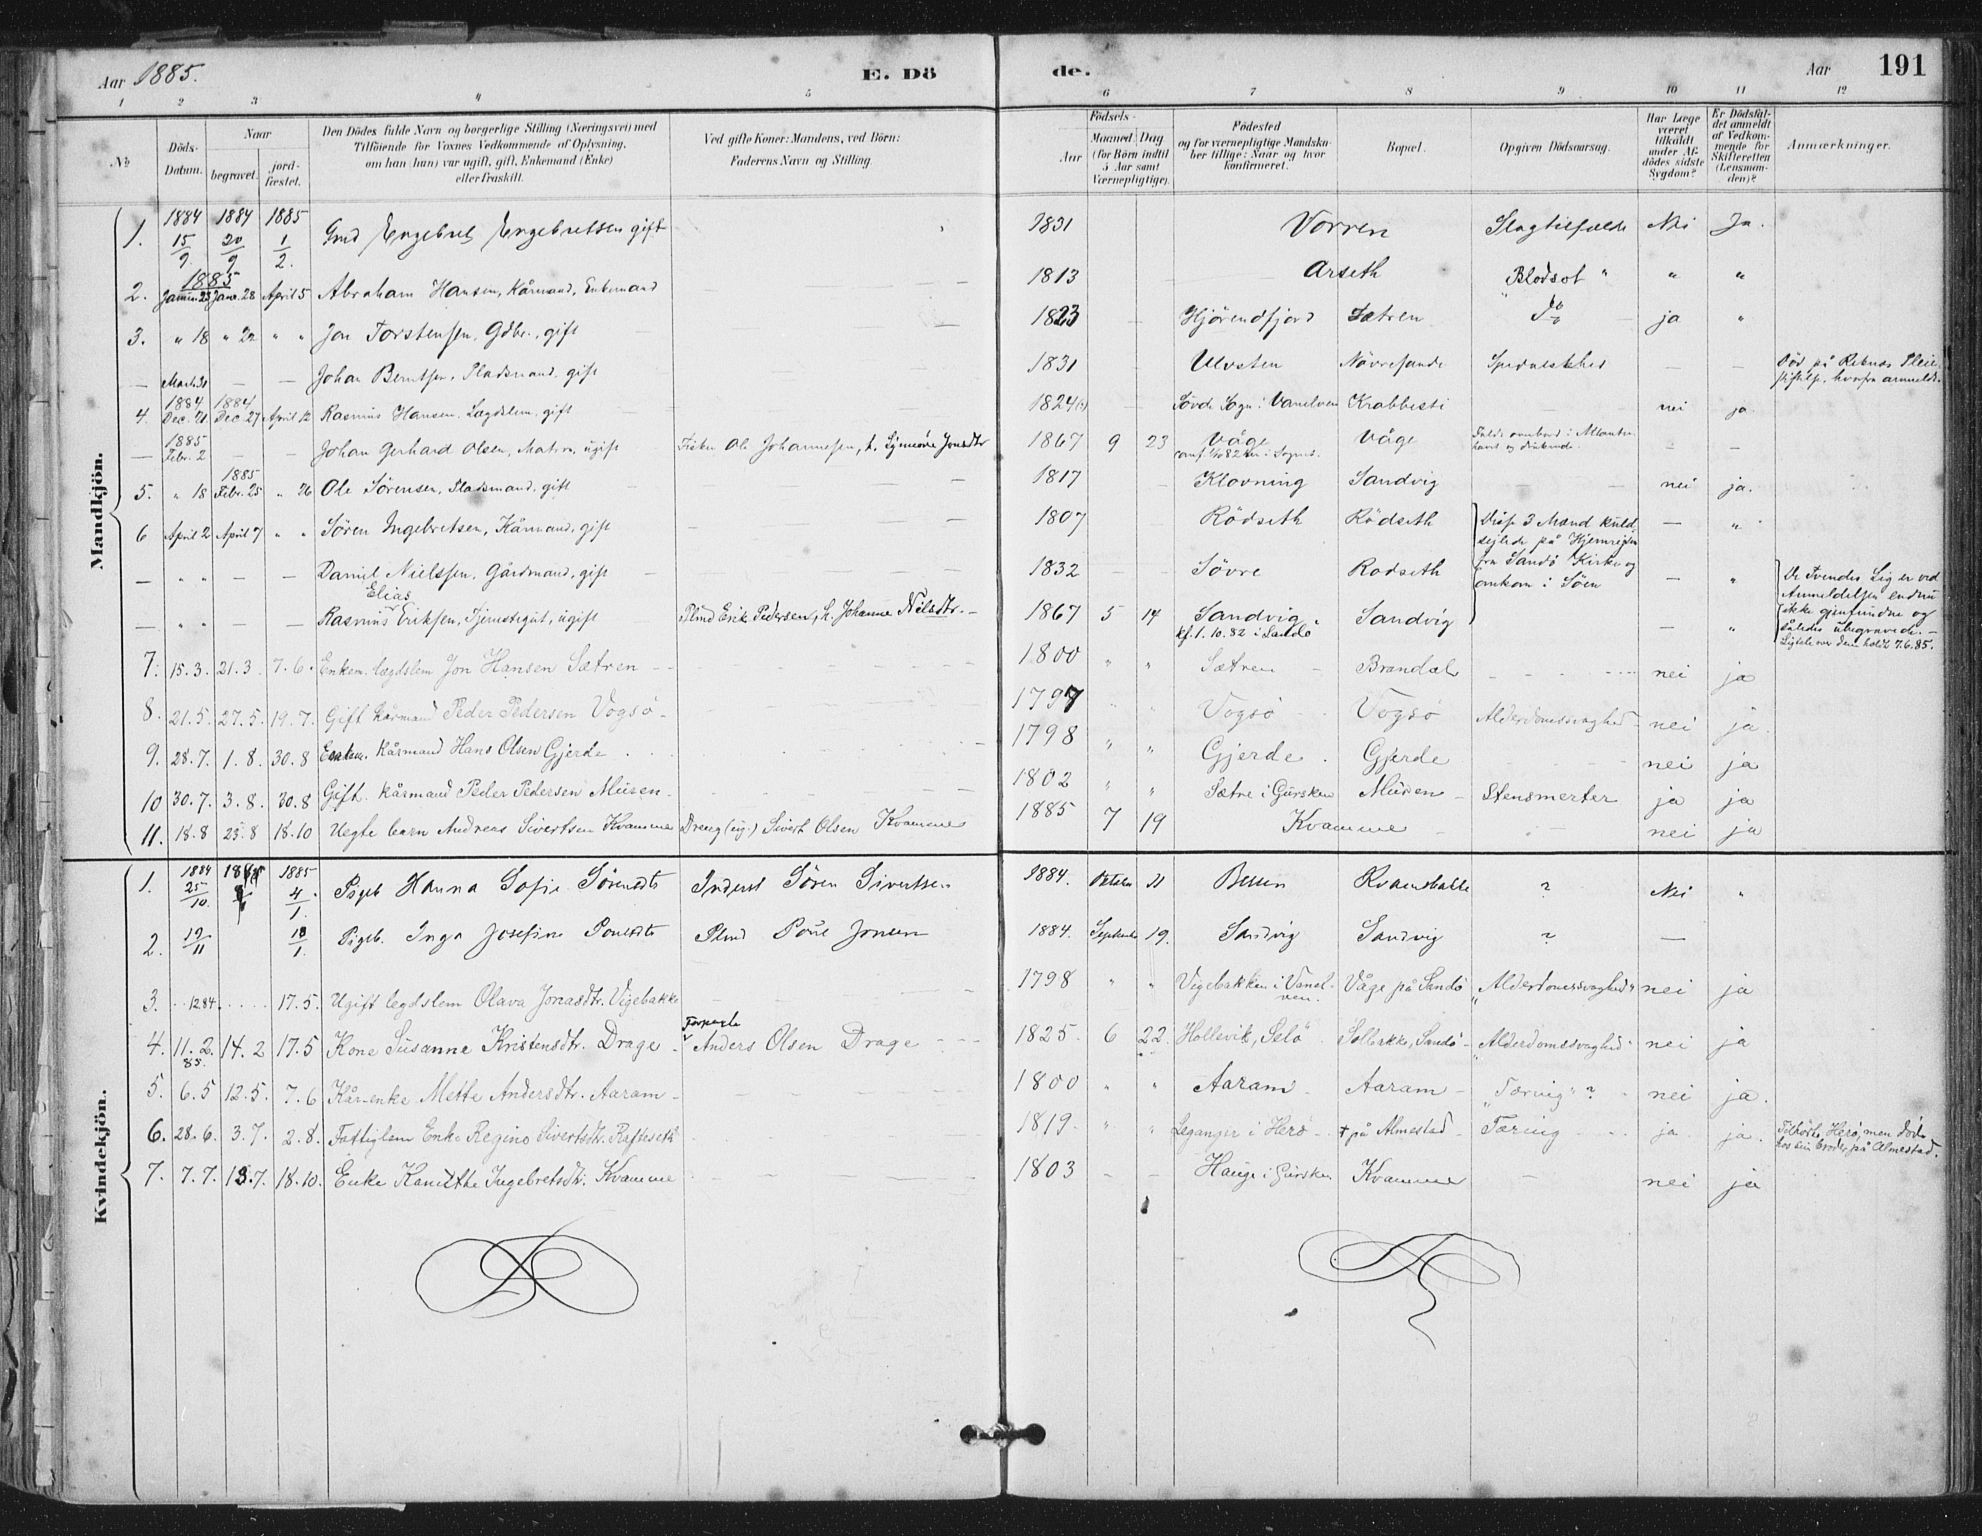 Aar 1885. E. Dö de. Aar 191
1 2 3 4 5 6 7 8 9 10 11 12
No
Döds-Datum.
Naar
begravet.
jord-fæstet.
Den Dödes fulde Navn og borgerlige Stilling (Næringsvei) med
Tilföiende for Voxnes Vedkommende af Oplysning,
om han (hun) var ugift, gift, Enkemand (Enke)
eller fraskilt.
Ved gifte Koner: Mandens, ved Börn:
Faderens Navn og Stilling.
Födsels-
Aar
Maaned Dag
(for Börn indtil
5 Aar samt
Værnepligtige).
Födested
og for værnepligtige Mandskaber tillige: Naar og hvor
konfirmeret.
Bopæl.
Opgiven Dödsaarsag.
Har Læge
været
tilkaldt
under Afdödes sidste
Sygdom?
Er Dödsfaldet anmeldt
af Vedkommende for
Skifteretten
(Lensmanden)?
Anmærkninger.
Mandkjön.
1. 1884 15/9 1884 20/9 1885 1/2. Gmd Engebret Engebretsen gift 1831 Vorren Slagtilfælde Nei Ja.
2. 1885 Januar 23 Janr. 28 April 5 Abraham Hansen, Kårmand, Enkemand 1813 Arseth Blodsot " " "
3. " 18 " 22 " " Jon Torstensen, Gdbr., gift 1823 Hjørendfjord Sætren do ja "
— Marts 31 — — Johan Berntsen, Pladsmand, gift 1831 Ulvsten Növresande Spedalskhed — — Död på Reknæs Pleiestiftelse, hvorfra anmeldt.
4. 1884 Dec. 21 1884 Dec. 27 April 12 Rasmus Hansen, Lægdslem, gift 1824 Sövde Sogn i Vanelven Krabbesti nei ja.
— 1885 Febr. 2 Johan Gerhard Olsen, Matros, ugift Fisker Ole Johannesen, h. Synnøve Jonsdtr 1867 9 23 Våge Våge Faldt overbord i Atlanterhavet og druknede. — —
5. " 18 1885 Febr. 25 " 26 Ole Sørensen, Pladsmand, gift 1817 Klovning Sandvig nei ja.
6 April 2 April 7 " " Søren Ingebretsen, Kårmand, gift 1807 Rödseth Rödseth Disse 3 Mænd kuldsejlede på Hjemrejsen — "
— " " — — Daniel Nielssen, Gårdmand, gift 1832 Søvre Rødseth fra Sandö Kirke og omkom i Søen — " De Tvendes Lig er ved Anmeldelsen endnu
— " " — — Rasmus Elias Eriksen, Tjenestegut, ugift Plmd Erik Pedersen, h. Johanne Nilsdtr. 1867 5 14 Sandvig kf. 1.10.82 i Sandö Sandvig — " ikke gjenfundne og således ubegravede. — Ligtale over dem holdt 7.6.85.
7. 15.3. 21.3 7.6. Enkem. lægdslem Jon Hansen Sætren 1800 " " Sætren Brandal nei ja
8. 21.5. 27.5. 19.7. Gift kårmand Peder Pedersen Vogsö 1797 Vogsö Vogsö Alderdomssvaghed nei ja
9. 28.7. 1.8. 30.8 Enkem. kårmand Hans Olsen Gjerde 1798 " " Gjerde Gjerde nei ja
10 30.7. 3.8. 30.8 Gift. kårmand Peder Pedersen Müren 1802 " " Sætre i Gursken Müren Stensmerter ja ja
11. 18.8 23.8 18.10 Uegte barn Andreas Sivertsen Kvamme Dreng (ug.) Sivert Olsen Kvamme 1885 7 19 Kvamme nei ja
Kvindekjön.
1. 1884 25/10. 1885 4/1. Pigeb. Hanna Sofie Sörensdtr Inderst Sören Sivertsen 1884. Oktober 11 Bessen Kvamsbakke ? Nei "
2. 19/11 18/1. Pigeb. Inga Josefine Poulsdtr Plmd Poul Jonsen 1884. September 19. Sandvig Sandvig ? —
3. 12 84. 17.5. Ugift legdslem Olava Jonasdtr. Vigebakke 1798 " " Vigebakken i Vanelven. Våge på Sandö "Alderdomssvaghed" nei ja
4. 11.2. 85. 14.2 17.5 Kone Susanne Kristensdtr. Drage Forpagter Anders Olsen Drage 1825. 6 22. Hollevik, Selö Sandö "Alderdomssvaghed" nei ja
5. 6.5 12.5. 7.6 Kår-enke Mette Andersdtr. Aaram 1800 " " Aaram Aaram "Tæring" ? nei ja.
6. 28.6. 3.7. 2.8. Fattiglem Enke Regine Sivertsdtr. Rafteseth 1819. " " Leganger i Herö † på Almestad Tæring ja ja. Tilhörte Herö, men döde hos sin broder på Almestad.
7. 7.7. 13.7 18.10. Enke Kanutthe Ingebretsdtr. Kvamme 1803 — — Hauge i Gursken Kvamme — nei ja